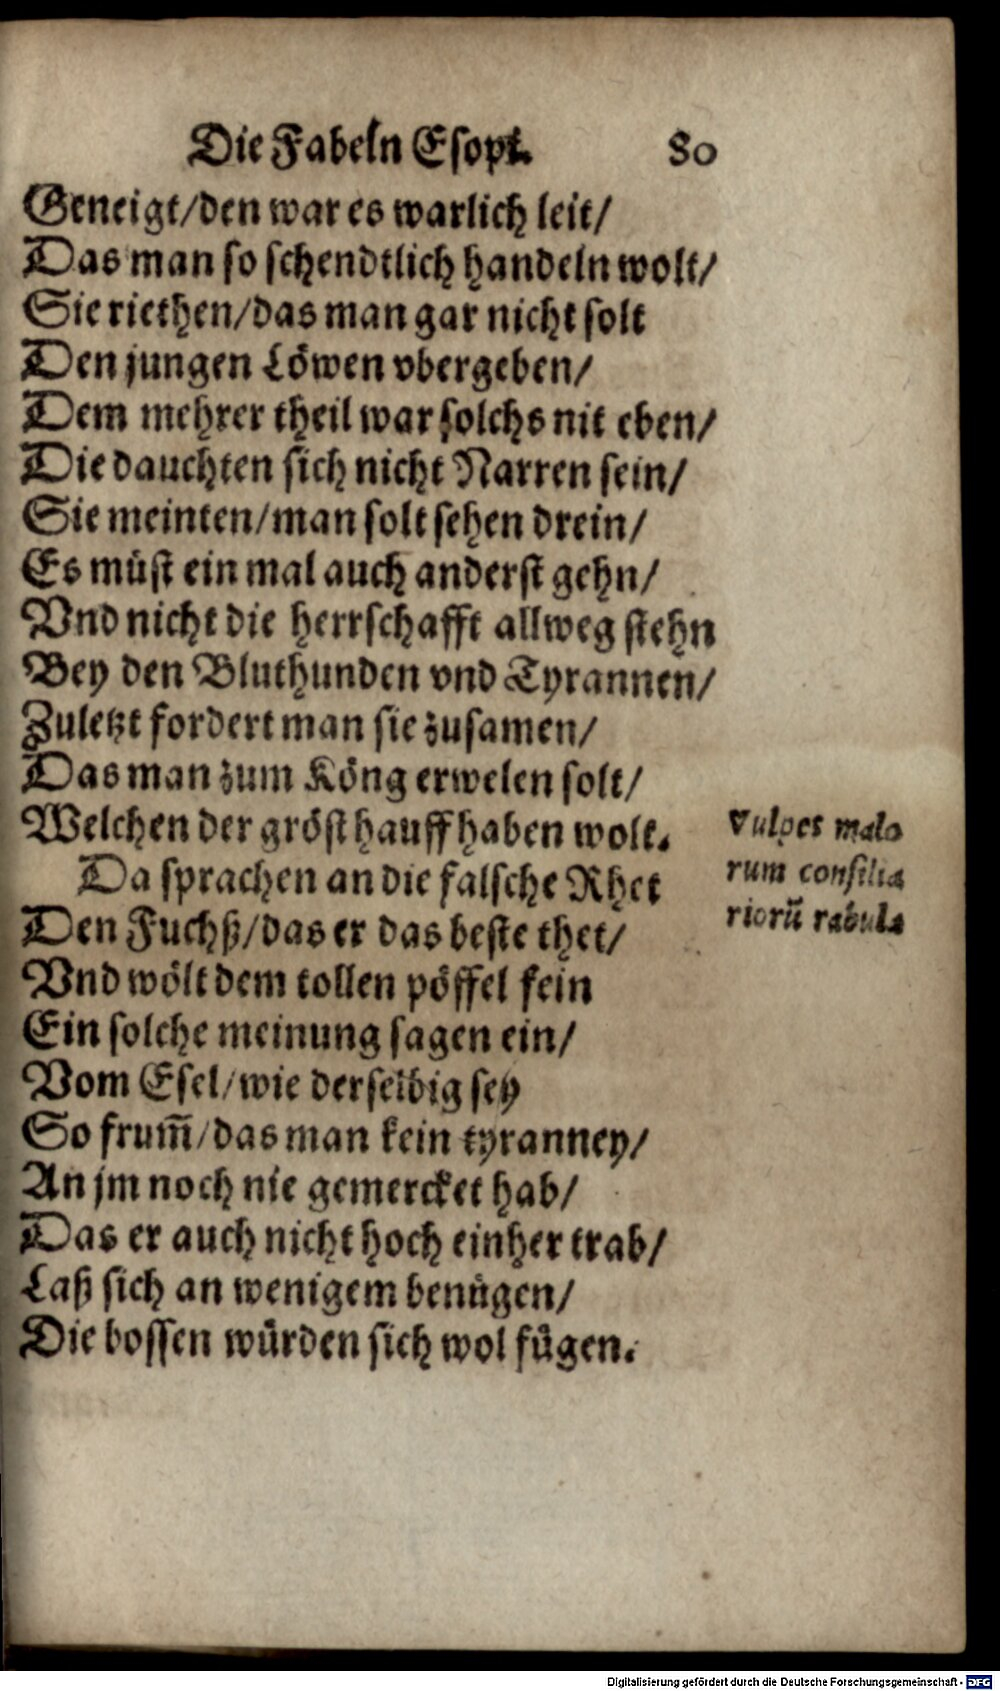 Die Fabeln Esopi. 80
Geneigt/den war es warlich leit/
Das man so schendtlich handeln wolt/
Sie riethen/das man gar nicht solt
Den jungen Löwen vbergeben/
Dem mehrer theil war solchs nit eben/
Die dauchten sich nicht Narren sein/
Sie meinten/man solt sehen drein/
Es müst ein mal auch anderst gehn/
Vnd nicht die herrschafft allweg stehn
Bey den Bluthunden vnd Tyrannen/
Zuletzt fordert man sie zusamen/
Das man zum Köng erwelen solt/
Welchen der gröst hauff haben wolt.
Da sprachen an die falsche Rhet
Den Fuchß/das er das beste thet/
Vnd wölt dem tollen pöffel fein
Ein solche meinung sagen ein/
Vom Esel/wie derselbig sey
So frum̄/das man kein tyranney/
An jm noch nie gemercket hab/
Das er auch nicht hoch einher trab/
Laß sich an wenigem benügen/
Die bossen würden sich wol fügen.
Vulpes malo
rum consilia
riorū rabula
Digitalisierung gefördert durch die Deutsche Forschungsgemeinschaft - DFG